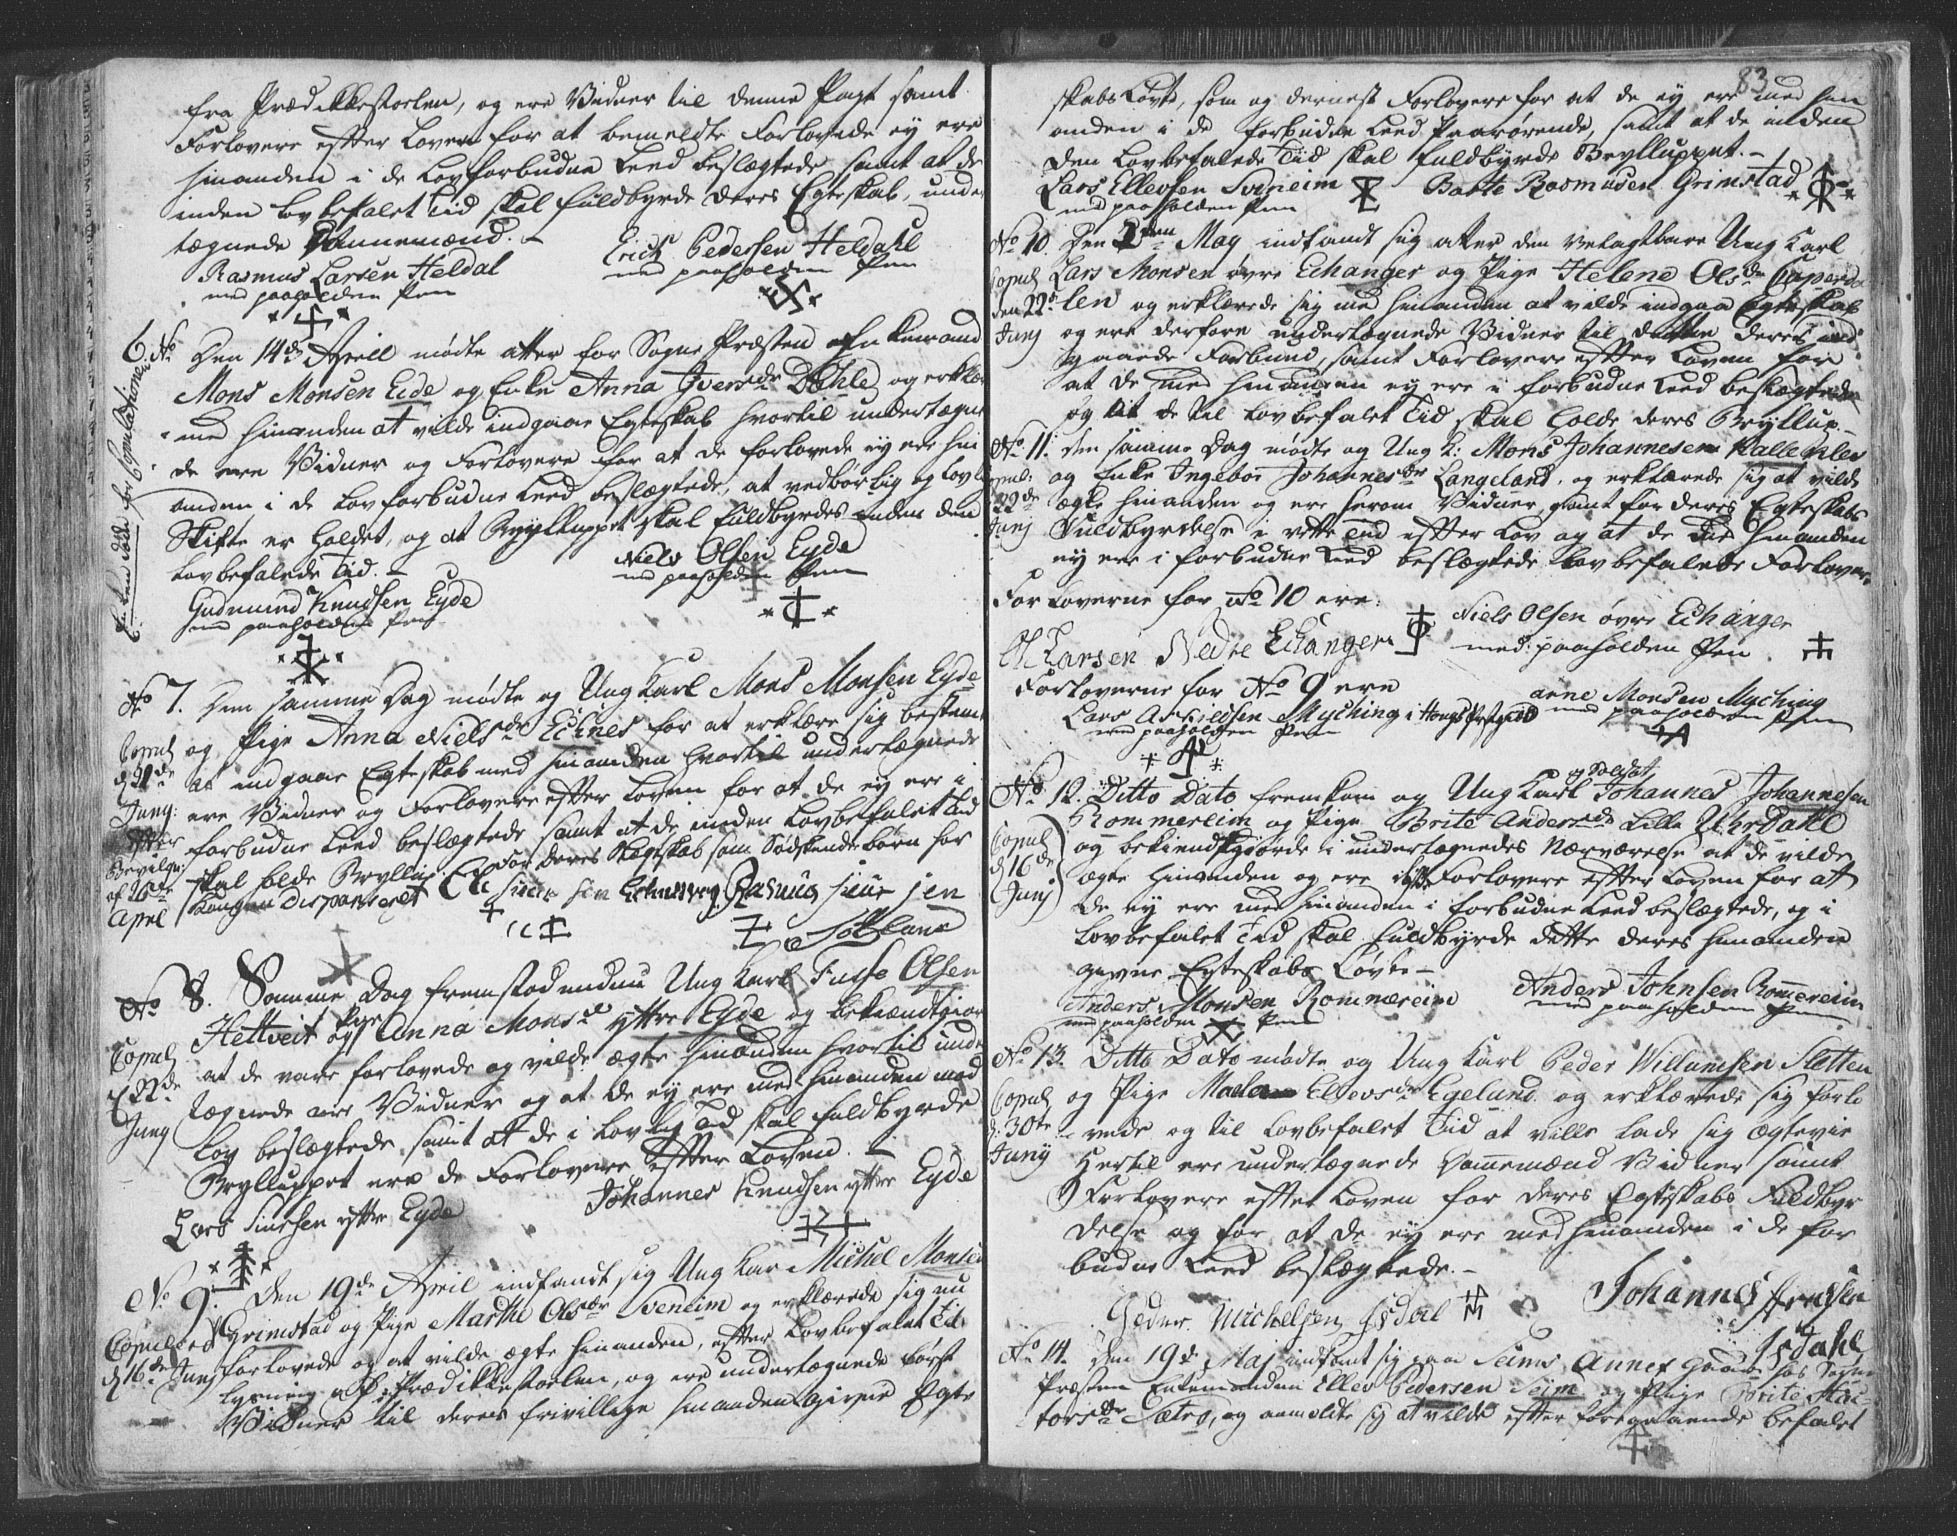 fra Prædikkestoelen, og ere Vidner til denne Pagt samt
Forlovere efter Loven for at bemeldte Forlovede ey ere
hinanden i de Lovforbudne Leed beslægtede samt at de
inden Lovbefalet Tiid skal fuldbyrde deres Egteskab, under
tægnede Dannemænd. -
Rasmus Larsen Heldal
med paaholden Pen
Erich Pedersen Heldahl
med paaholden Pen
6. No Den 14de Aprill mødte atter for Sogne Præsten Enkemand
Mons Monsen Eide og Enke Anna Iversdr Dahle og erklær
med hinanden at vilde indgaae Egteskab hvortil undertægne
de ere Vidner og Forlovere for at de forlovede ey ere hin
anden i de Lovforbudne Leed beslægtede, at vedbørlig og lovl
Skifte er holdet, og at Brylluppet skal fuldbyrdes inden den
Lovbefalede Tid. -
Gudmund Knudsen Eyde
med paaholden Pen
Niels Olsen Eyde
med paaholden Pen
No 7. Den samme Dag mødte og Ung Karl Mons Monsen Eyde
og Pige Anna Nielsdr Echnes for at erklære sig bestemt
at indgaae Egteskab med hinanden hvortil undertægnede
ere Vidner og Forlovere efter Loven for at de ey ere i
forbudne Leed beslægtede samt at de inden Lovbefalet Tid
skal holde Bryllup for deres Slægtskab som Sødskendebørn har
Kongen dispenseret
Copul
d 21de
Juny:
efter
Bevilgn:
af 26te
Aprel
Rasmus siur sen
No 8. Samme Dag fremstod endnu Ung Karl Fusse Olsen
Hettveit og Pige Anna Monsd yttre Eyde og bekiændtgior
at de vare forlovede og vilde ægte hinanden hvortil under
tægnede ere Vidner og at de ey ere med hinanden mod
Lov beslægtede samt at de i Lovlig Tid skal fuldbyrde
Brylluppet ere de Forlovere efter Loven. -
Copul
d 22de
Juny
Lars Siursen yttre Eyde
Johannes Knudsen yttre Eyde
No 9. Den 19de April indfandt sig Ung Kar Michel Monsen
Grimstad og Pige Marthe Olsdr Sveneim og erklærede sig nu
forlovede og at vilde ægte hinanden, efter Lovbefalet Tid
Lysning af Prædikkestoelen, og ere undertægnede først
Vidner til deres frivillige hinanden givne Egte
Copulered
d 16de Junj
83
skabs Løvte, som og dernest Forlovere for at de ey ere med hin
anden i de forbudne Leed Paarørende, samt at de inden
den Lovbefalede Tiid skal fuldbyrde Brylluppet. -
Lars Ellevsen Sveneim
med paaholden Pen
Baste Rasmusen Grimstad
No 10. Den 1sten May indfandt sig atter den Velagtbare Ung Karl
Lars Monsen øvre Echanger og Pige Helene Olsdr
len og erklærede sig med hinanden at vilde indgaa Egteskab
og ere derfore undertægnede Vidner til dette deres ind
gaaede Forbund, samt Forlovere efter Loven for
at de med hinanden ey ere i forbudne Leed beslægtede
og at de til Lovbefalet Tid skal holde deres Bryllup. -
Copul
den 22d
Junj
No 11. den samme Dag mødte og Ung K: Mons Johannesen Kalleklev
og Enke Ingebor Johannesdr Langeland. og erklærede sig at vilde
ægte hinanden og ere herom Vidner samt for deres Egteskabs
Fuldbyrdelse i rette Tiid efter Lov og at de Lod hinanden
ey ere i forbudne Leed beslægtede Lovbefalede Forlovere
Copul:
d 22de
Junj
Forloverne for No 10 ere:
Ol Larsen Nedre Echanger
Niels Olsen øvre Echanger
med paaholden Pen
Forloverne for No 9 ere
Lars Arnedsen Myching i Hougs Prstgield
med paaholden Pen
arne Monsen Myching
med paaholden Pen
No 12. Ditto Dato fremkom og Ung Karl og Soldat Johannes Johannesen
Rommereim og Pige Brite Andersdr Lille Uhrdahl
og bekiendtgiorde i undertægnedes Nærværelse at de vilde
ægte hinanden og ere disse Forlovere efter Loven for at
de ey ere med hinanden i forbudne Leed beslægtede, og i
Lovbefalet Tid skal fuldbyrde dette deres hinanden
givne Egteskabs Løvte -
Copul
d 16de
Junj
Anders Monsen Rommereim
med paaholden Pen
Anders Johnsen Romereim
med paaholden Pen
No 13. Ditto Dato mødte og Ung Karl Peder Willumsen Sletten
og Pige Ellevsdr Egeland og erklærede sig forlo
vede og til Lovbefalet Tid at ville lade sig ægtevie
Hertil ere undertægnede Dannemænd Vidner samt
Forlovere efter Loven for deres Egteskabs Fuldbyr
delse og for at de ey ere med hinanden i de for
budne Leed beslægtede. -
Copul
d: 30te
Junij
Peder Michelsen Isdal
Johannes
Isdahl
No 14. Den 19d Maj indfant sig paa Seims Annex Gaard hos Sogne
Præsten Enkemanden Ellev Pedersen Seim og Pige Brite
torsdr Sætre, og anmeldte sig at vilde efter foregaaende befalet